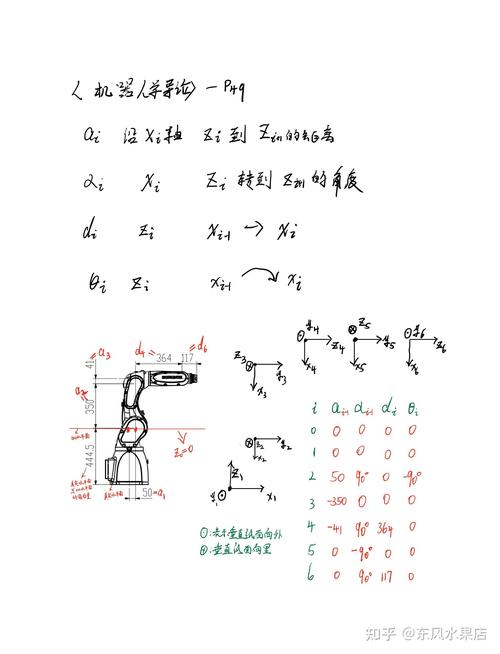 《机器人学导论》- P49
ai 沿 Xi轴 Zi 到 Zi+1的距离
αi Xi Zi 转到 Zi+1 的角度
di Zi Xi-1 → Xi
θi Zi Xi-1 → Xi
=a3 d4= 364 117 =d6
41
350
444.5
Z0=0
50=a1
Z3 y3 X3
y4 Z4 X4
Z5 y5 X5
y6 Z6 X6
Z2 y2 X2
Z1 y1 X1
⊙:表示垂直纸面向外
⊗:垂直纸面向里
i ai-1 αi-1 di θi
0 0 0 0 0
1 0 0 0 0
2 50 90° 0 -90°
3 -350 0 0 0
4 -41 90° 364 0
5 0 -90° 0 0
6 0 90° 117 0
知乎 @东风水果店